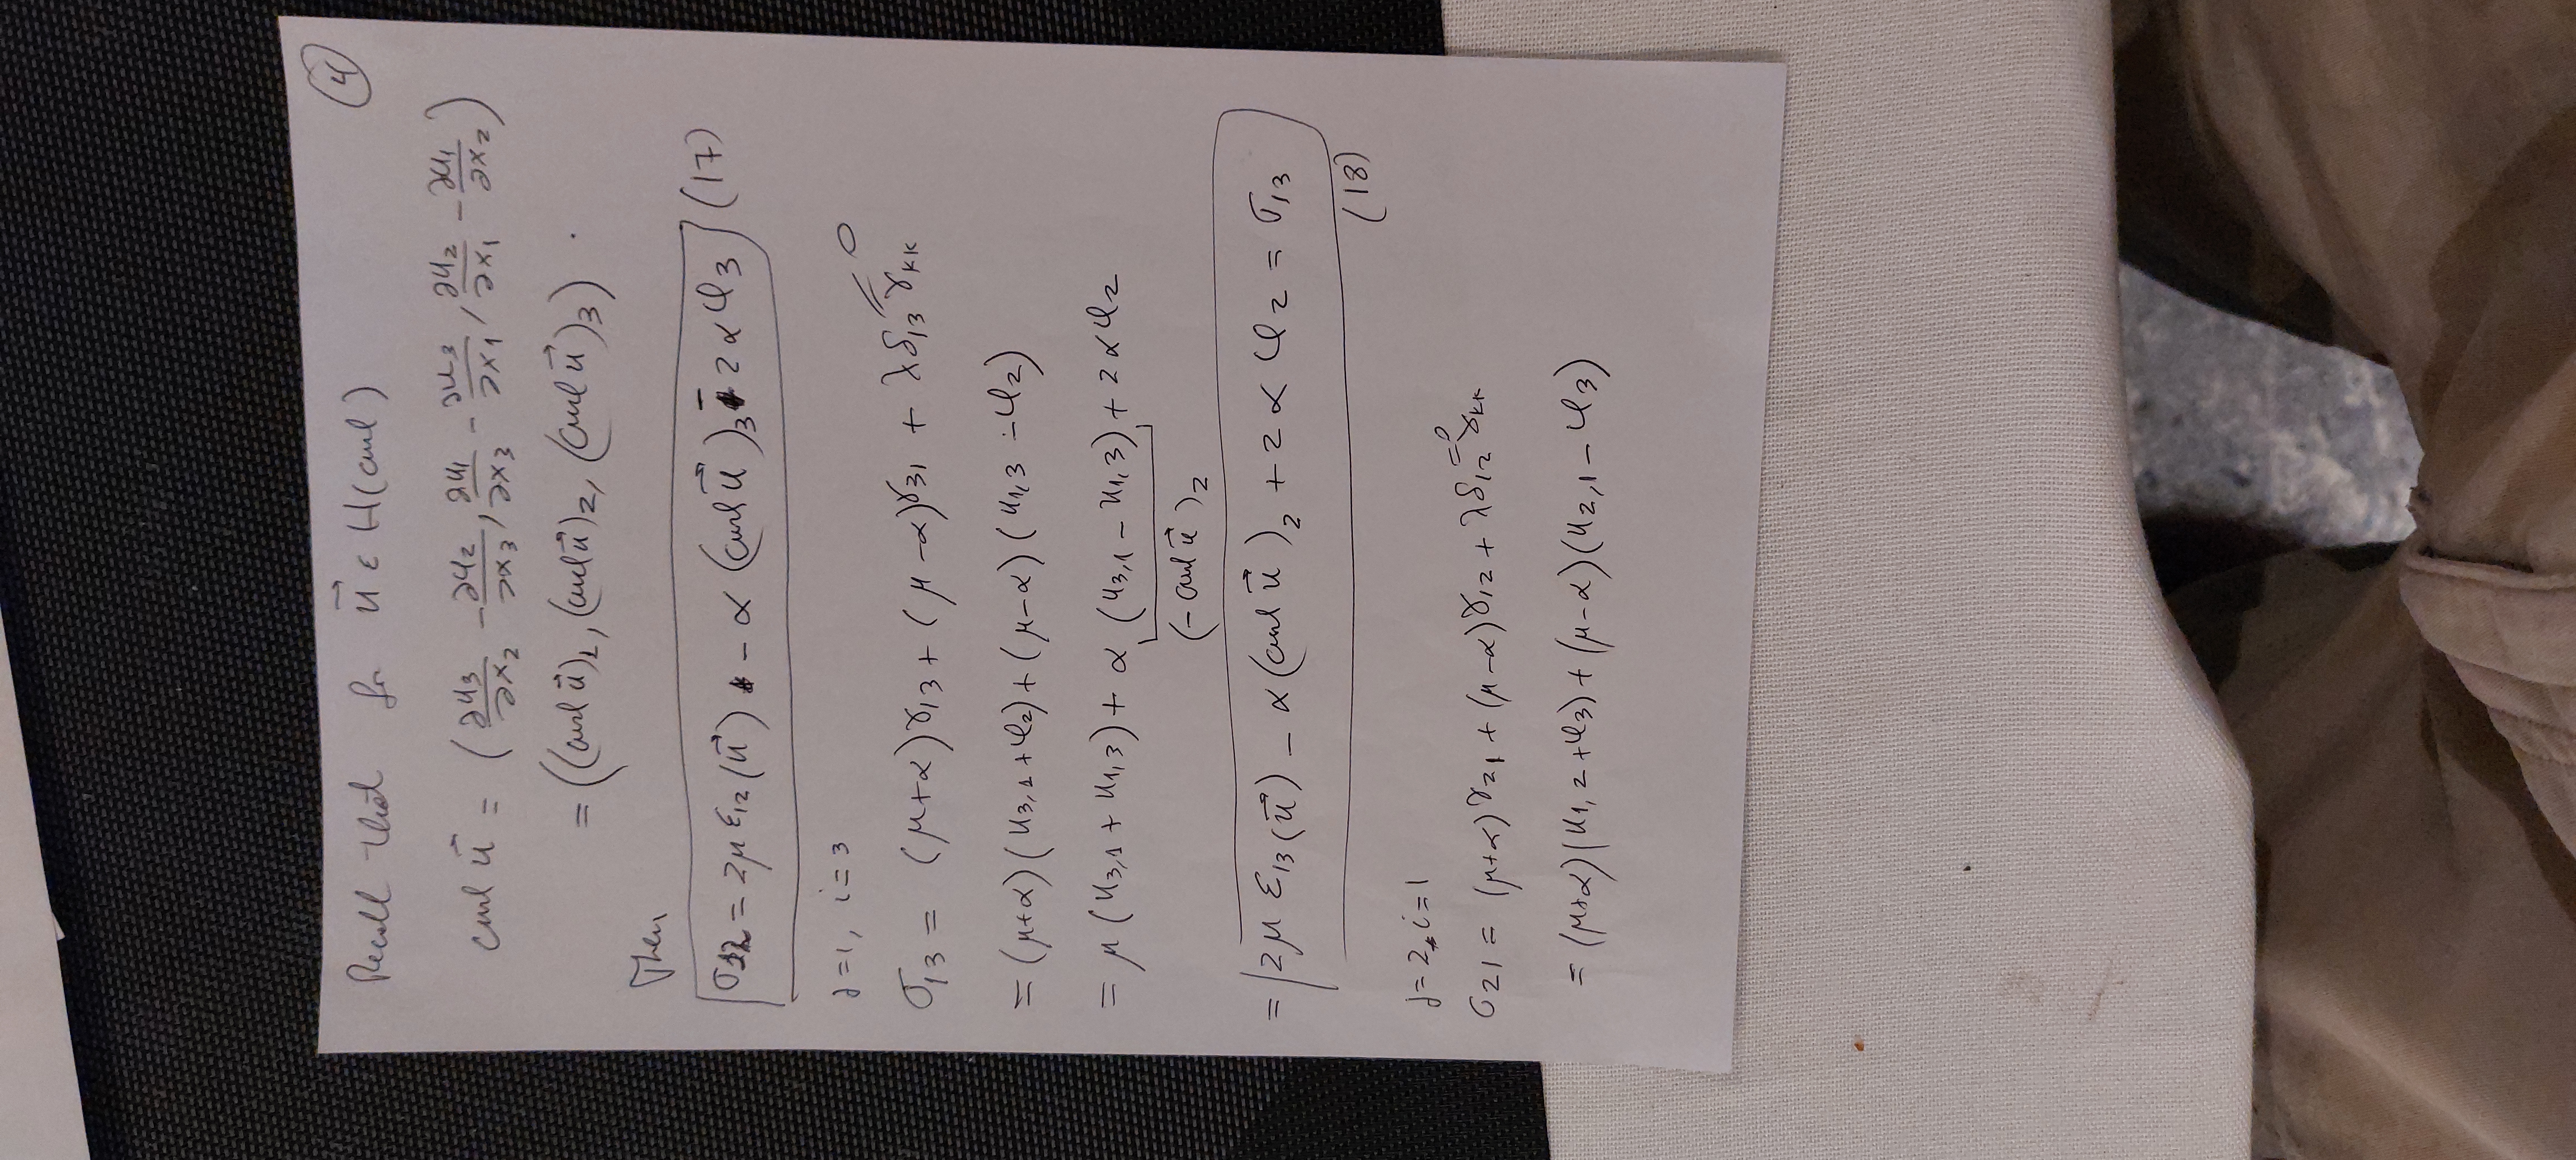 (4)
Recall that for u⃗ ε H(curl)
curl u⃗ = (∂u₃/∂x₂ - ∂u₂/∂x₃, ∂u₁/∂x₃ - ∂u₃/∂x₁, ∂u₂/∂x₁ - ∂u₁/∂x₂)
= ((curl u⃗)₁, (curl u⃗)₂, (curl u⃗)₃).
Then
σ₁₂ = 2μ ε₁₂(u⃗) - α (curl u⃗)₃ - 2αφ₃ (17)
j=1, i=3
σ₁₃ = (μ+α)γ₁₃ + (μ-α)γ₃₁ + λδ₁₃γₖₖ = 0
= (μ+α)(u₃,₁+φ₂) + (μ-α)(u₁,₃-φ₂)
= μ(u₃,₁ + u₁,₃) + α(u₃,₁ - u₁,₃) + 2αφ₂
(-curl u⃗)₂
= 2μ ε₁₃(u⃗) - α(curl u⃗)₂ + 2αφ₂ = σ₁₃
(18)
j=2, i=1
σ₂₁ = (μ+α)γ₂₁ + (μ-α)γ₁₂ + λδ₁₂γₖₖ = 0
= (μ+α)(u₁,₂+φ₃) + (μ-α)(u₂,₁-φ₃)